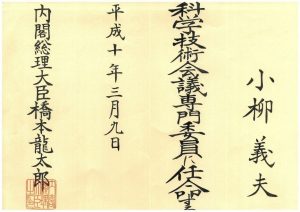 小柳義夫
科学技術会議専門委員に任命する
平成十年三月九日
内閣総理大臣橋本龍太郎